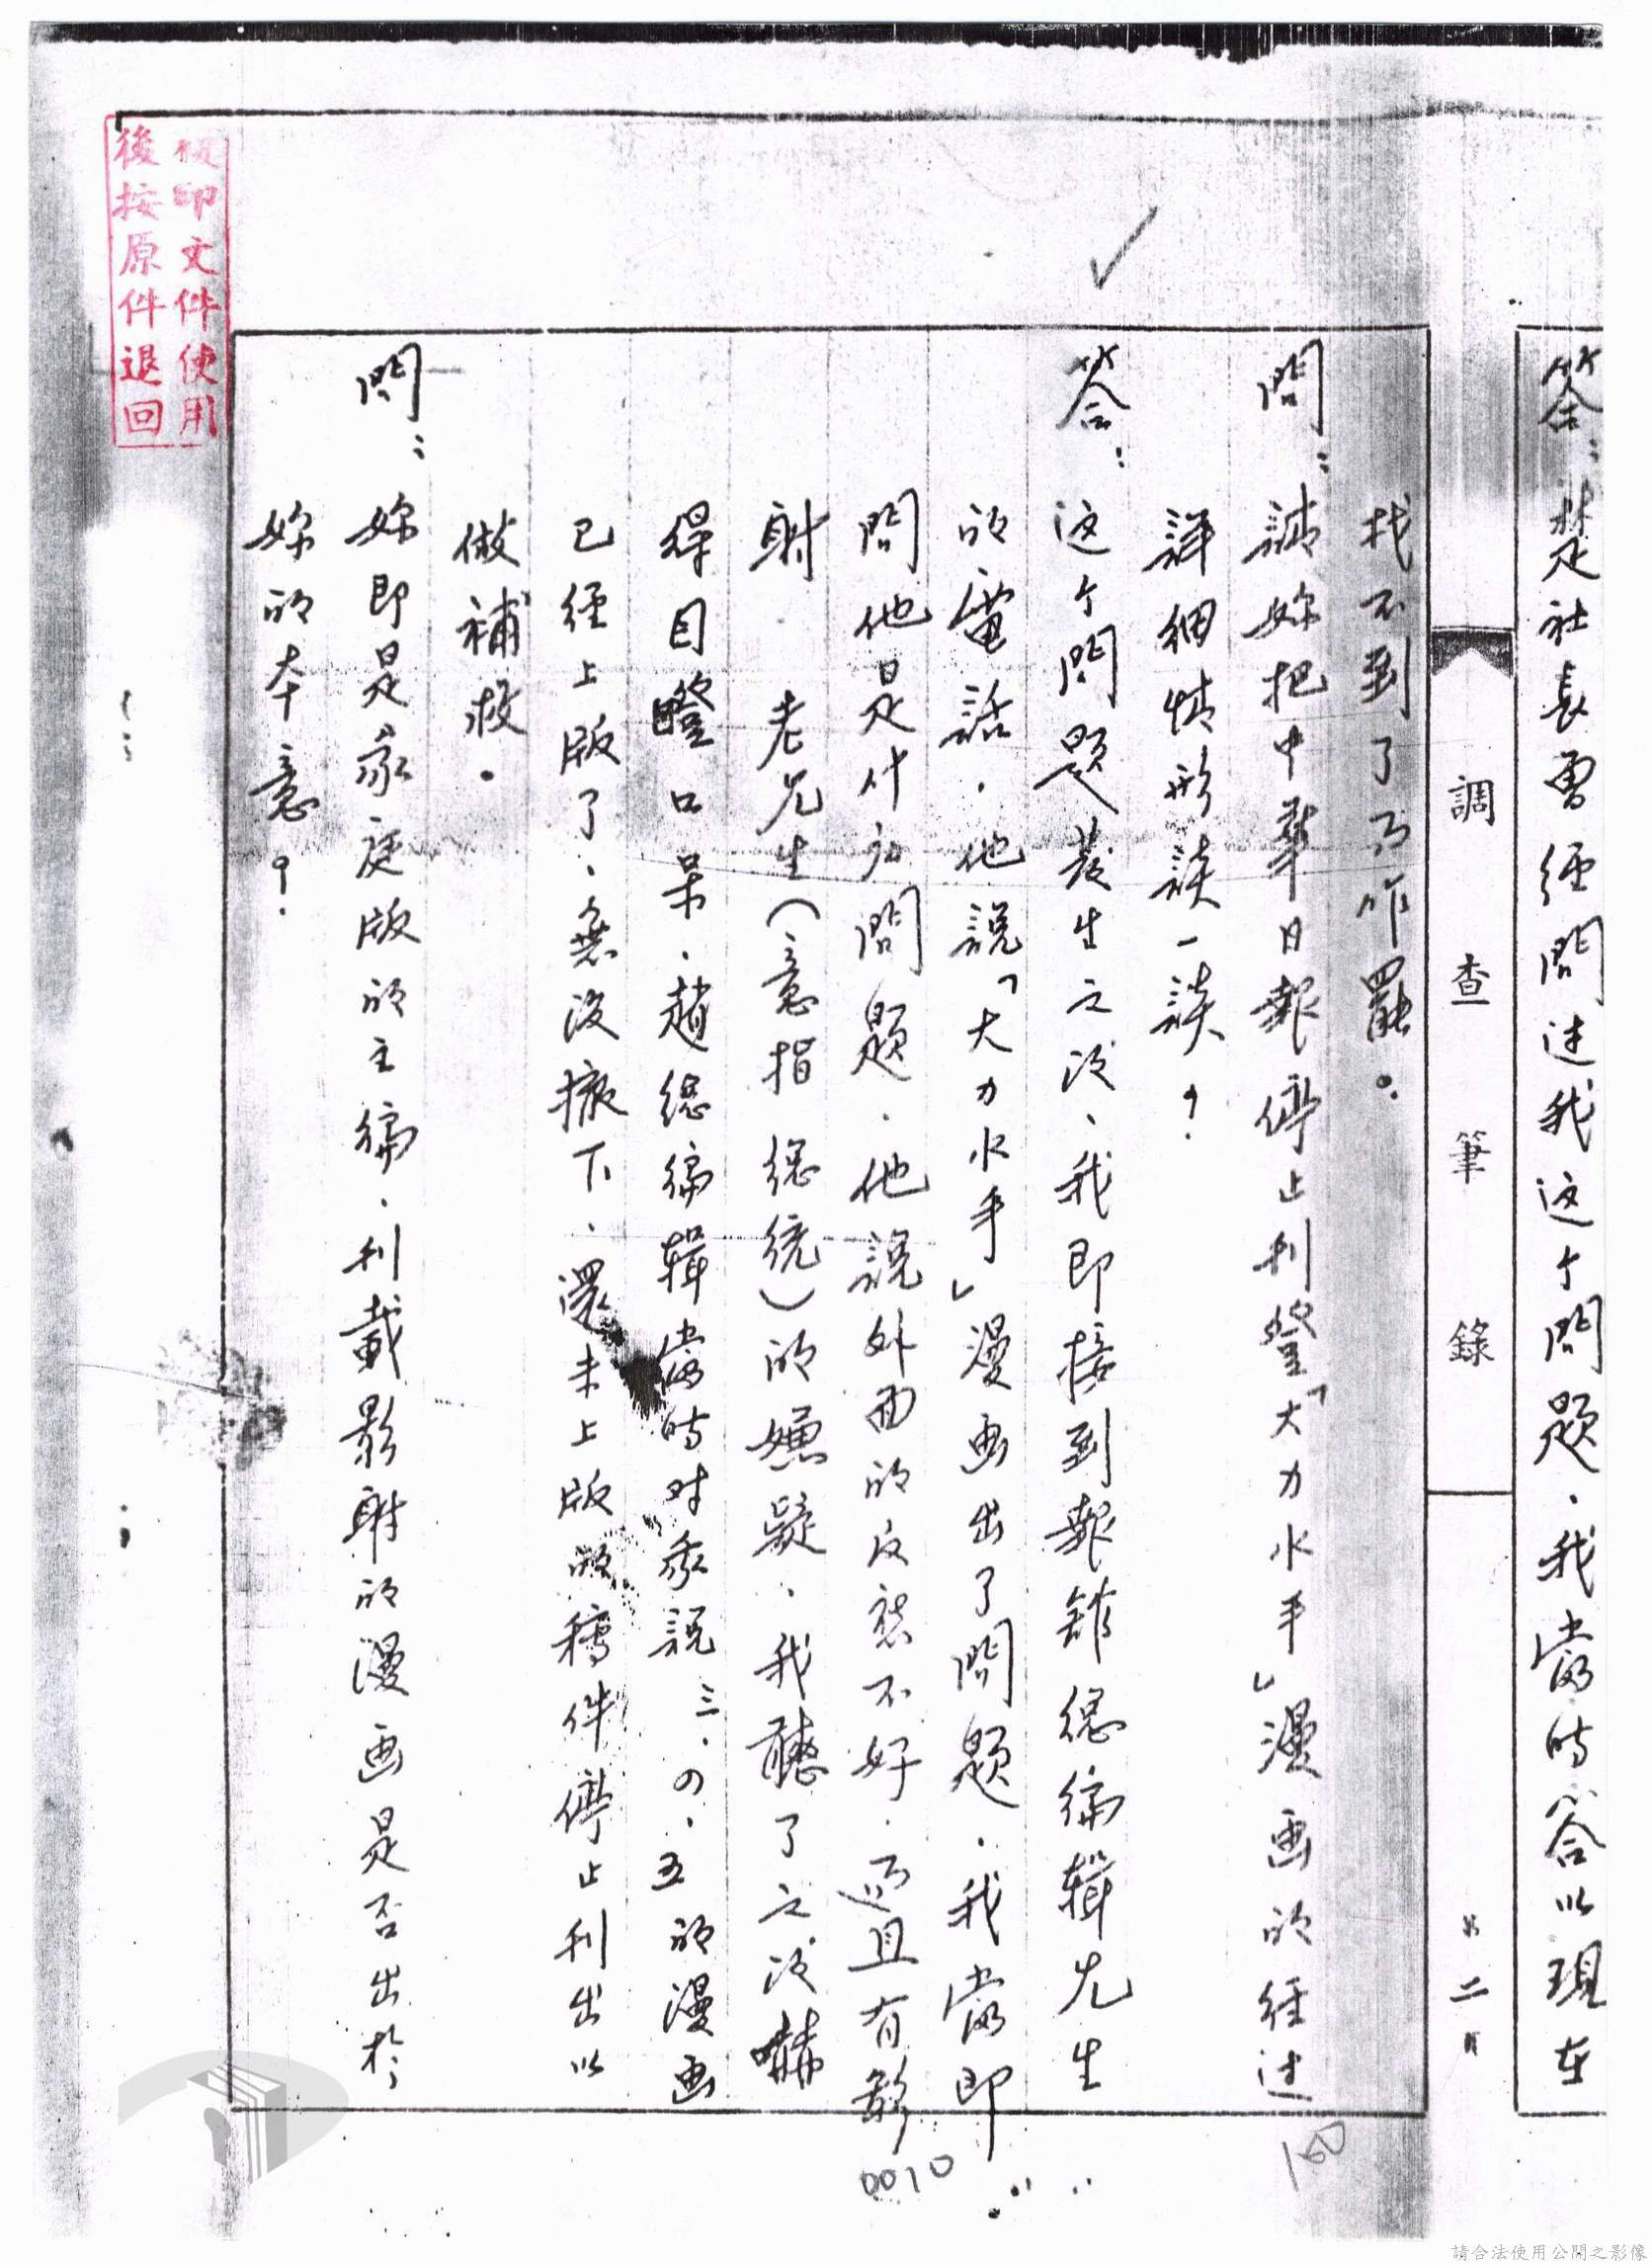 答：楚社長曾經問过我这个問題．我當時答以現在
調查筆錄
第二頁
找不到了而作罷。
問：請妳把中華日報停止刊登「大力水手」漫画的经过
詳細情形談一談？
答：这个問題发生之后、我即接到報館總编辑先生
的電話．他說「大力水手」漫画出了問題．我當即
問他是什么問題．他說外面的反應不好．而且有影
射　老先生（意指　總統）的嫌疑．我聽了之后嚇
得目瞪口呆．趙總编辑當時对我說三．四．五的漫画
已经上版了、無法撤下．還未上版的稿件停止刊出以
做補救。
問：妳即是家庭版的主编．刊載影射的漫画是否出於
妳的本意？
複印文件使用
後按原件退回
0010
150
請合法使用公開之影像